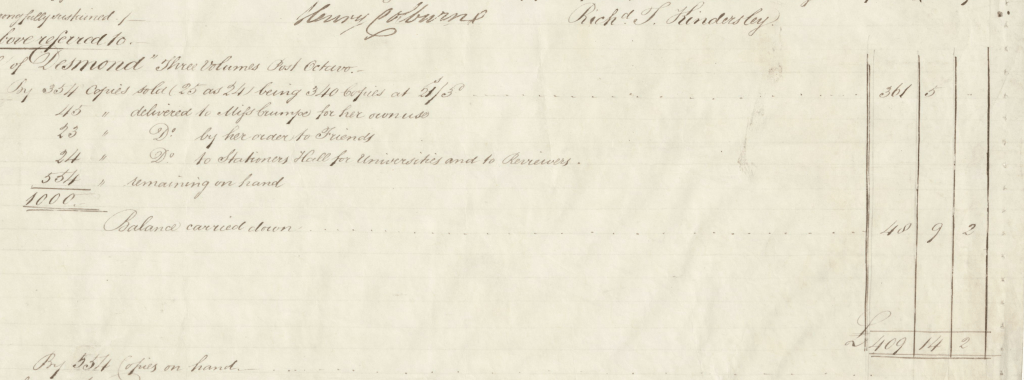 wrongfully sustained /-
Henry Colburne
Rich.d T. Kindersley
above referred to.-
of "Desmond" Three Volumes Post Octavo.-
By 354 Copies sold (25 as 24) being 340 Copies at 21/3d 361 5
45 " delivered to Miss Crumpe for her own use
23 " Do by her order to Friends
24 " Do to Stationers Hall for Universities and to Reviewers.
554 " remaining on hand
1000.
Balance carried down 48 9 2
£ 409 14 2
By 554 Copies on hand.